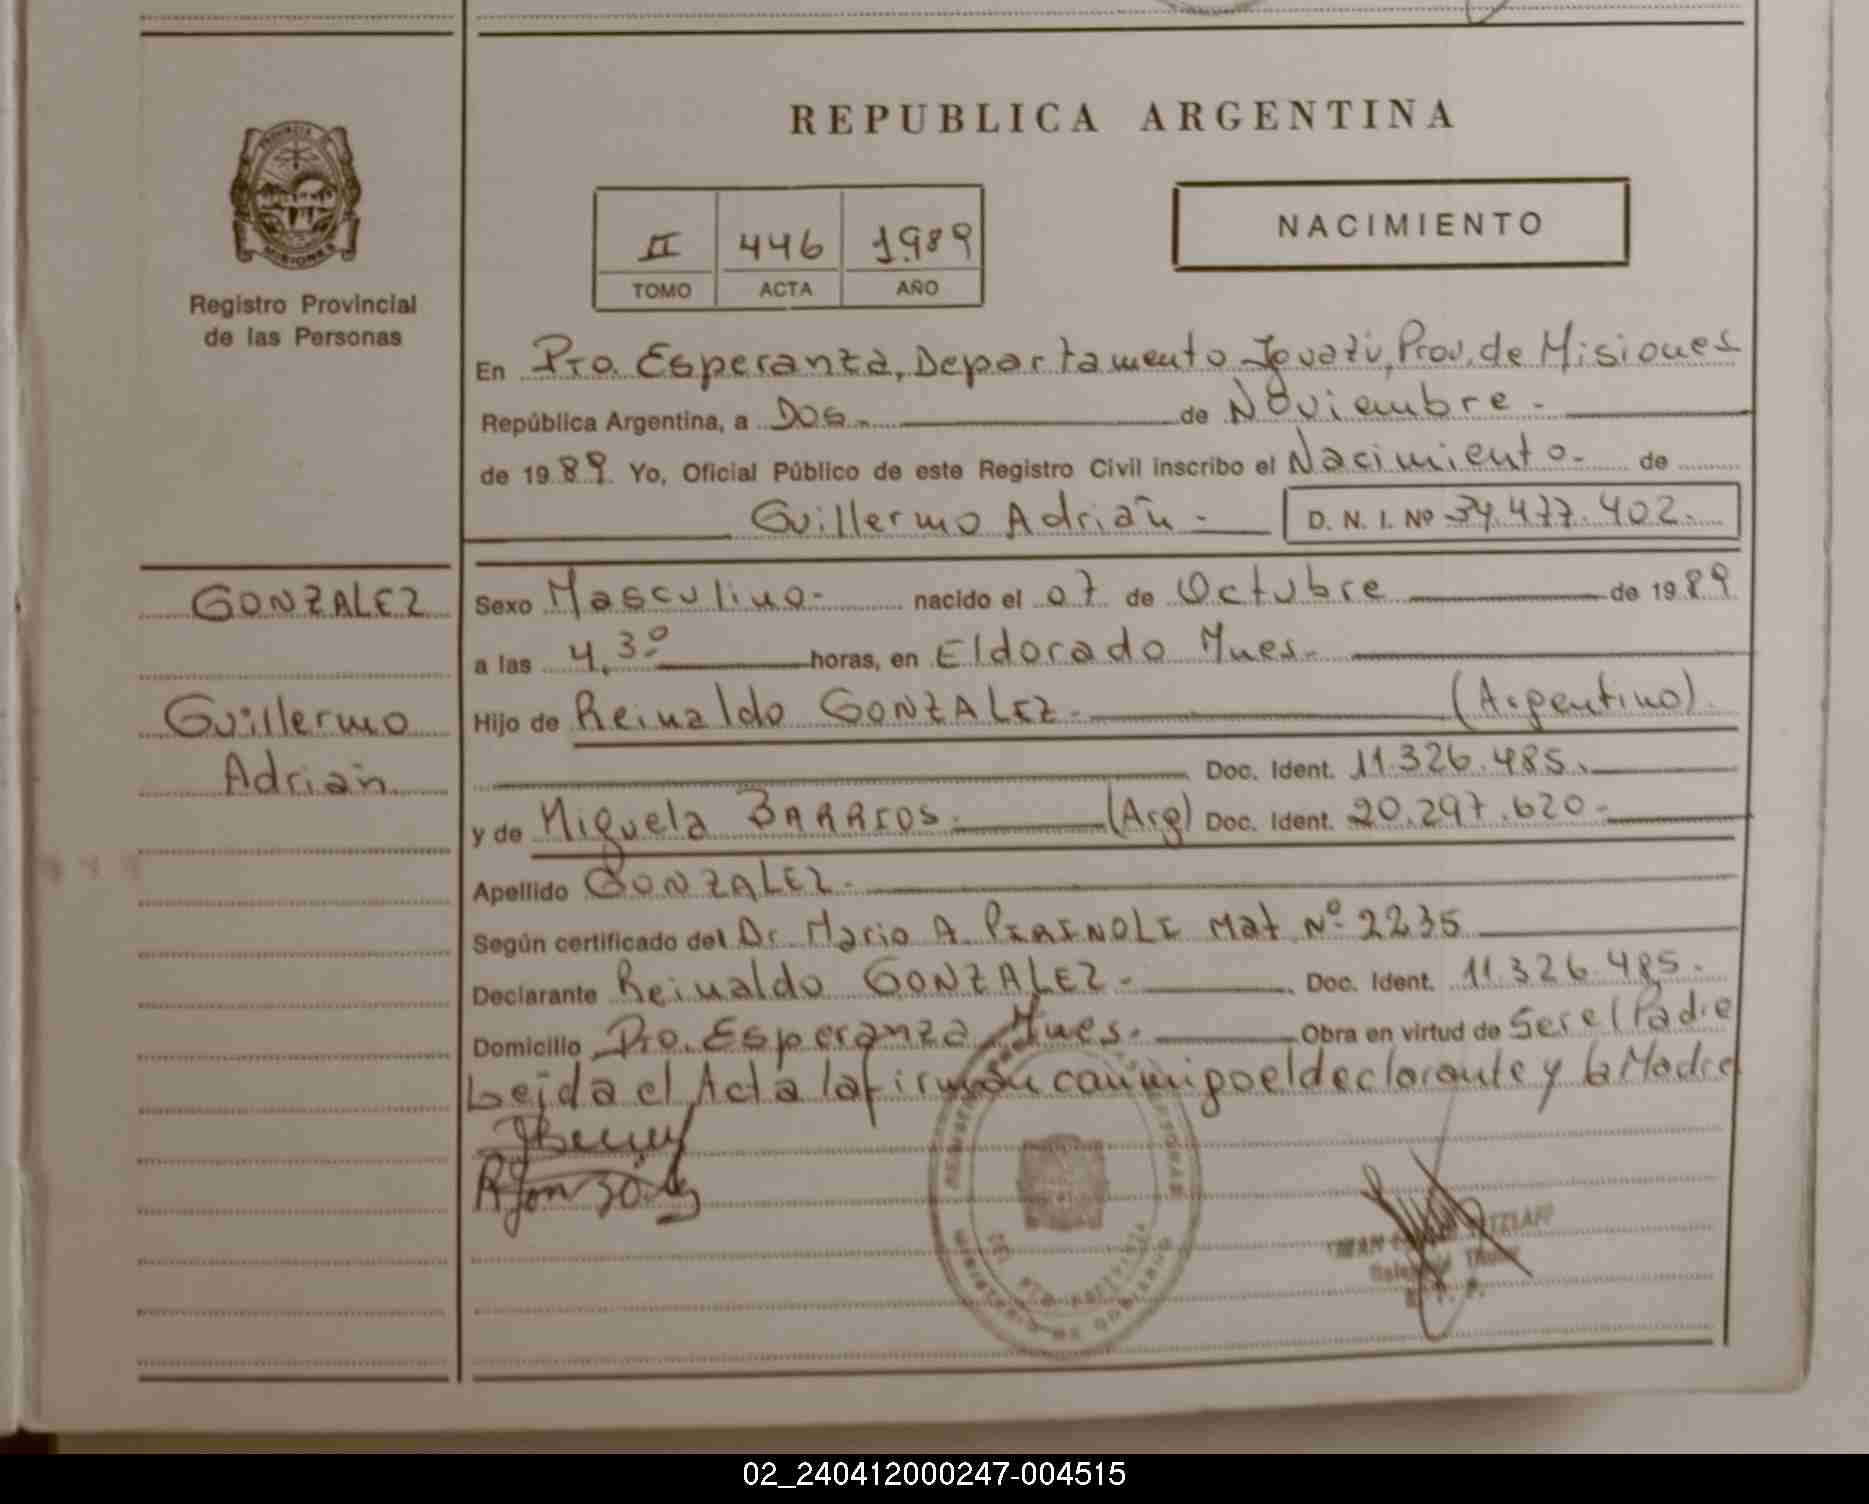 REPUBLICA ARGENTINA
PROVINCIA
MISIONES
Registro Provincial
de las Personas
II 446 1989
TOMO ACTA AÑO
NACIMIENTO
En Pto. Esperanza, Departamento Iguazú, Prov. de Misiones
República Argentina, a Dos.- de Noviembre.-
de 1989 Yo, Oficial Público de este Registro Civil inscribo el Nacimiento.- de
Guillermo Adrián.- D. N. I. Nº 34.477.402.
GONZALEZ
Guillermo
Adrián
Sexo Masculino- nacido el 07 de Octubre de 1989
a las 4,30 horas, en Eldorado Mnes.-
Hijo de Reinaldo GONZALEZ.- (Argentino).
Doc. Ident. 11.326.485.
y de Miguela BARRIOS.- (Arg) Doc. Ident. 20.297.620.-
Apellido GONZALEZ.-
Según certificado del Dr. Mario A. Mat Nº 2235
Declarante Reinaldo GONZALEZ.- Doc. Ident. 11.326.485.
Domicilio Pto. Esperanza Mnes.- Obra en virtud de Ser el Padre
Leida el Acta la firman conmigo el declarante y la Madre
RGonzález
MINISTERIO DE GOBIERNO
02_240412000247-004515